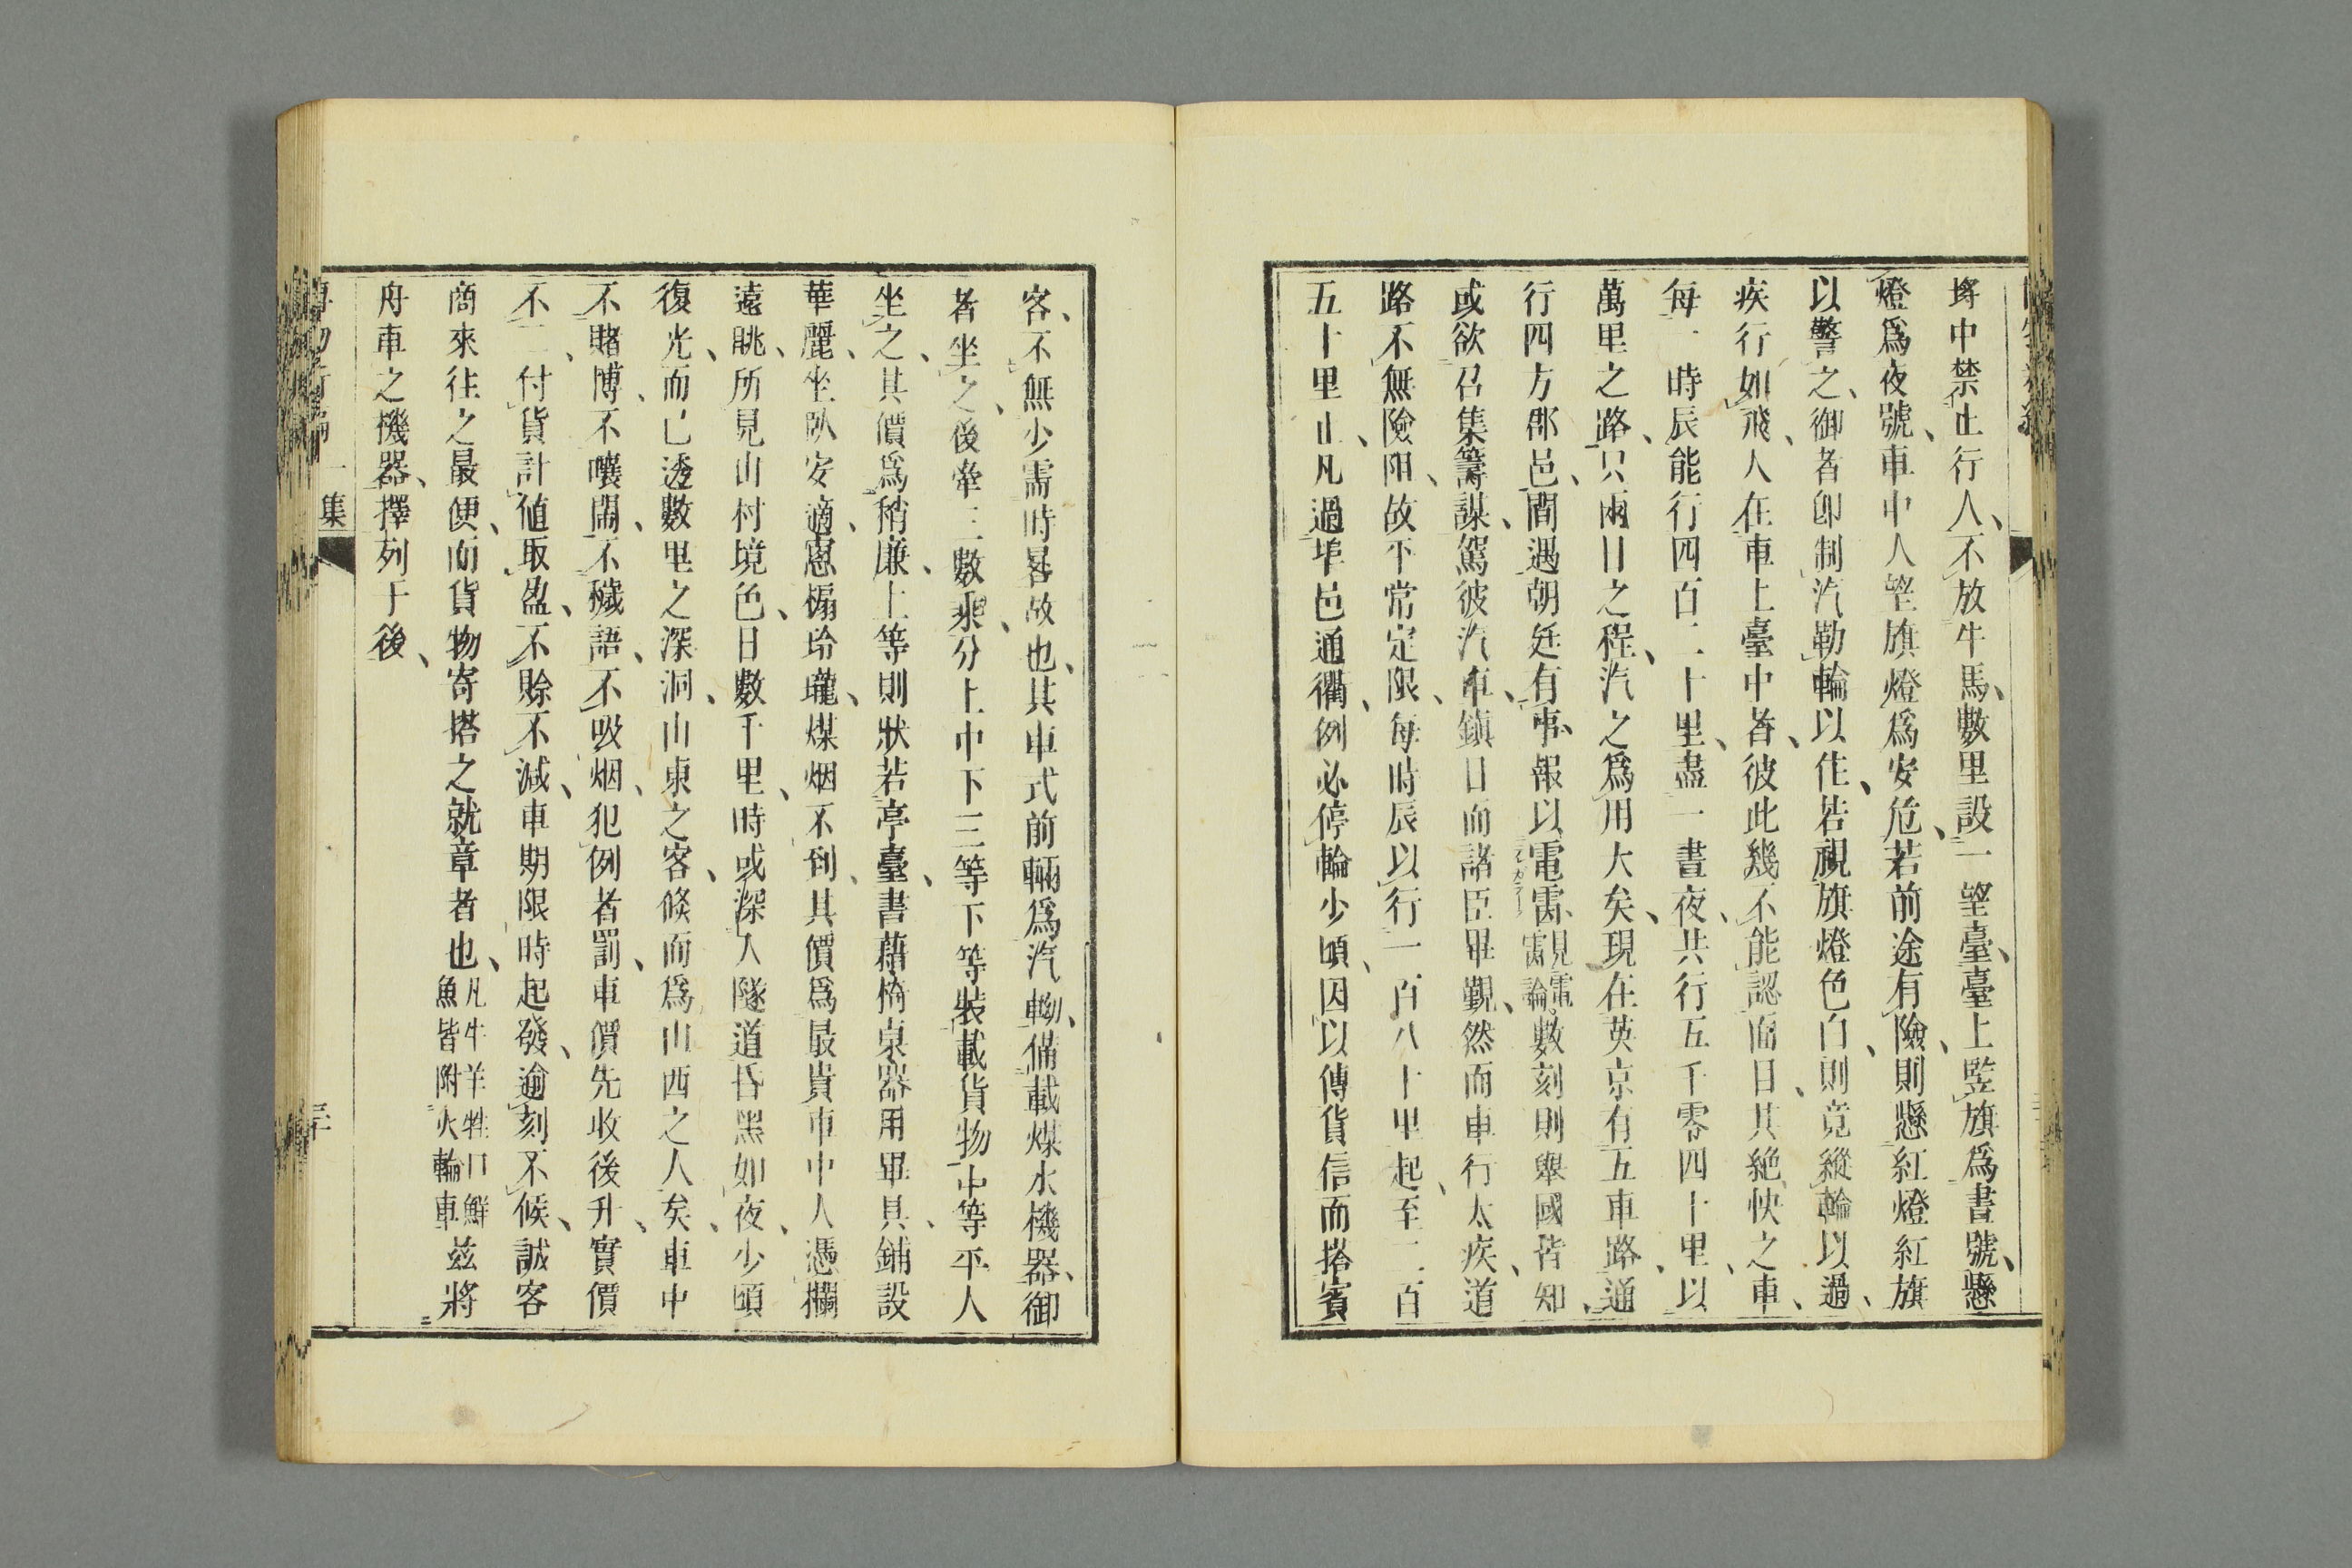 埓中禁止行人、不放牛馬、數里設一望臺、臺上竪旗爲晝號、懸
燈爲夜號、車中人望旗燈爲安危、若前途有險、則懸紅燈紅旗
以警之、御者卽制汽勒輪以住、若視旗燈色白、則竟縱輪以過、
疾行如飛、人在車上臺中者、彼此幾不能認面目、其絶快之車、
每一時辰能行四百二十里、盡一晝夜、共行五千零四十里、以
萬里之路、只兩日之程、汽之爲用大矣、現在英京有五車路、通
行四方郡邑、間遇朝廷有事、報以電雷、見電雷論數刻則舉國皆知、
或欲召集籌謀、駕彼汽車、鎮日而諸臣畢覲、然而車行太疾、道
路不無險阻、故平常定限、每時辰以行一百八十里起、至二百
五十里止、凡過埠邑通衢、例必停輪少頃、因以傳貨信而搭賓
客、不無少需時晷故也、其車式前輛爲汽輙、備載煤水機器、御
者坐之、後牽三數乘、分上中下三等、下等裝載貨物、中等平人
坐之、其價爲稍廉、上等則狀若亭臺、書藉椅桌器用畢具、鋪設
華麗、坐臥安適、窻槅玲瓏、煤烟不到、其價爲最貴、車中人憑欄
遠眺、所見山村境色、日數千里、時或深入隧道、昏黑如夜、少頃
復光、而已透數里之深洞、山東之客、倐而爲山西之人矣、車中
不賭博、不嚷閙、不穢語、不吸烟、犯例者罰、車價先收後升、實價
不二、付貨計値取盈、不賒不減、車期限時起發、逾刻不候、誠客
商來往之最便、而貨物寄搭之就章者也、凡牛羊牲口鮮魚皆附火輪車兹將
舟車之機器、擇列于後、
一集